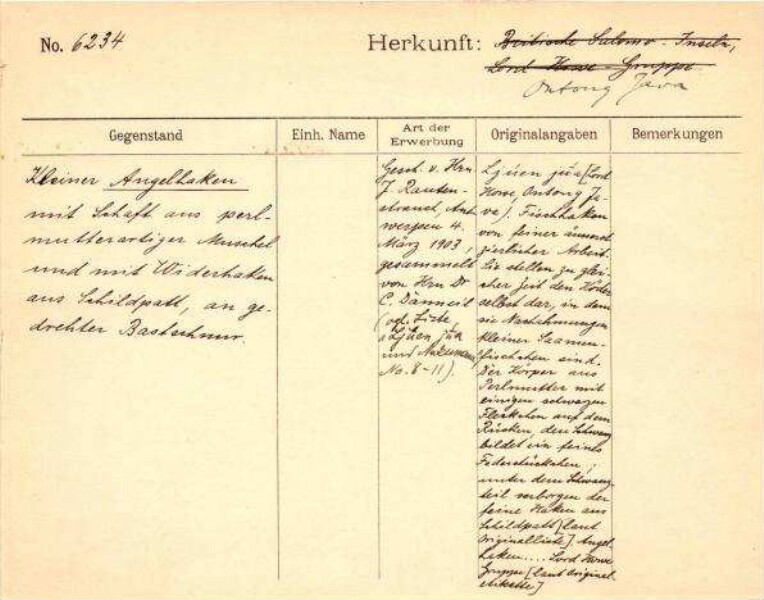 No. 6234
Herkunft: Britische Salomo-Inseln,
Lord Howe-Gruppe
Ontong Java
Gegenstand
Einh. Name
Art der
Erwerbung
Originalangaben
Bemerkungen
Kleiner Angelhaken
mit Schaft aus perl-
mutterartiger Muschel
und mit Widerhaken
aus Schildpatt, an ge-
drehter Bastschnur.
Gesch. v. Hrn
J. Rauten-
strauch, Ant
werpen 4.
März 1903,
gesammelt
von Hrn Dr
C. Dänneil
(vgl. Liste
Ljüen jüa
und
No. 8-11).
Ljüen jüa [Lord
Howe, Ontong Ja-
va]. Fischhaken
von feiner äusserst
zierlicher Arbeit.
Sie stellen zu glei-
cher Zeit den Köder
selbst dar, in dem
sie Nachahmungen
kleiner
fischchen sind.
Der Körper aus
Perlmutter mit
einigen schwarzen
Fleckchen auf dem
Rücken, den Schwanz
bildet ein feines
Federstückchen,
unter dem Schwanz-
teil verborgen der
feine Haken aus
Schildpatt [laut
Originalliste] Angel-
haken.... Lord Howe
Gruppe [laut Original-
etikette]